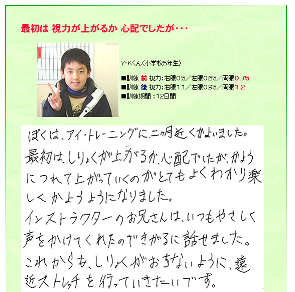 最初は 視力が上がるか 心配でしたが・・・
Y・Kくん(小学校5年生)
■訓練 前 視力:右眼0.5/左眼0.8/両眼0.75
■訓練 後 視力:右眼1.1/左眼0.8/両眼1.2
■訓練期間:12日間
ぼくは、アイ・トレーニングに、二カ月近くかよいました。
最初は、しりょくが上がるか、心配でしたが、かよう
につれて上がっていくのがとてもよくわかり楽
しくかようようになりました。
インストラクターのお兄さんは、いつもやさしく
声をかけてくれたのできがるに話せました。
これからも、しりょくがおちないように、遠
近ストレッチを行っていきたいです。